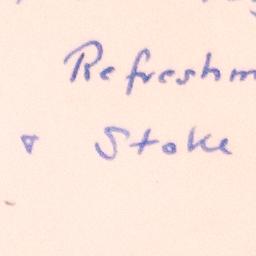 Refreshm
Stoke